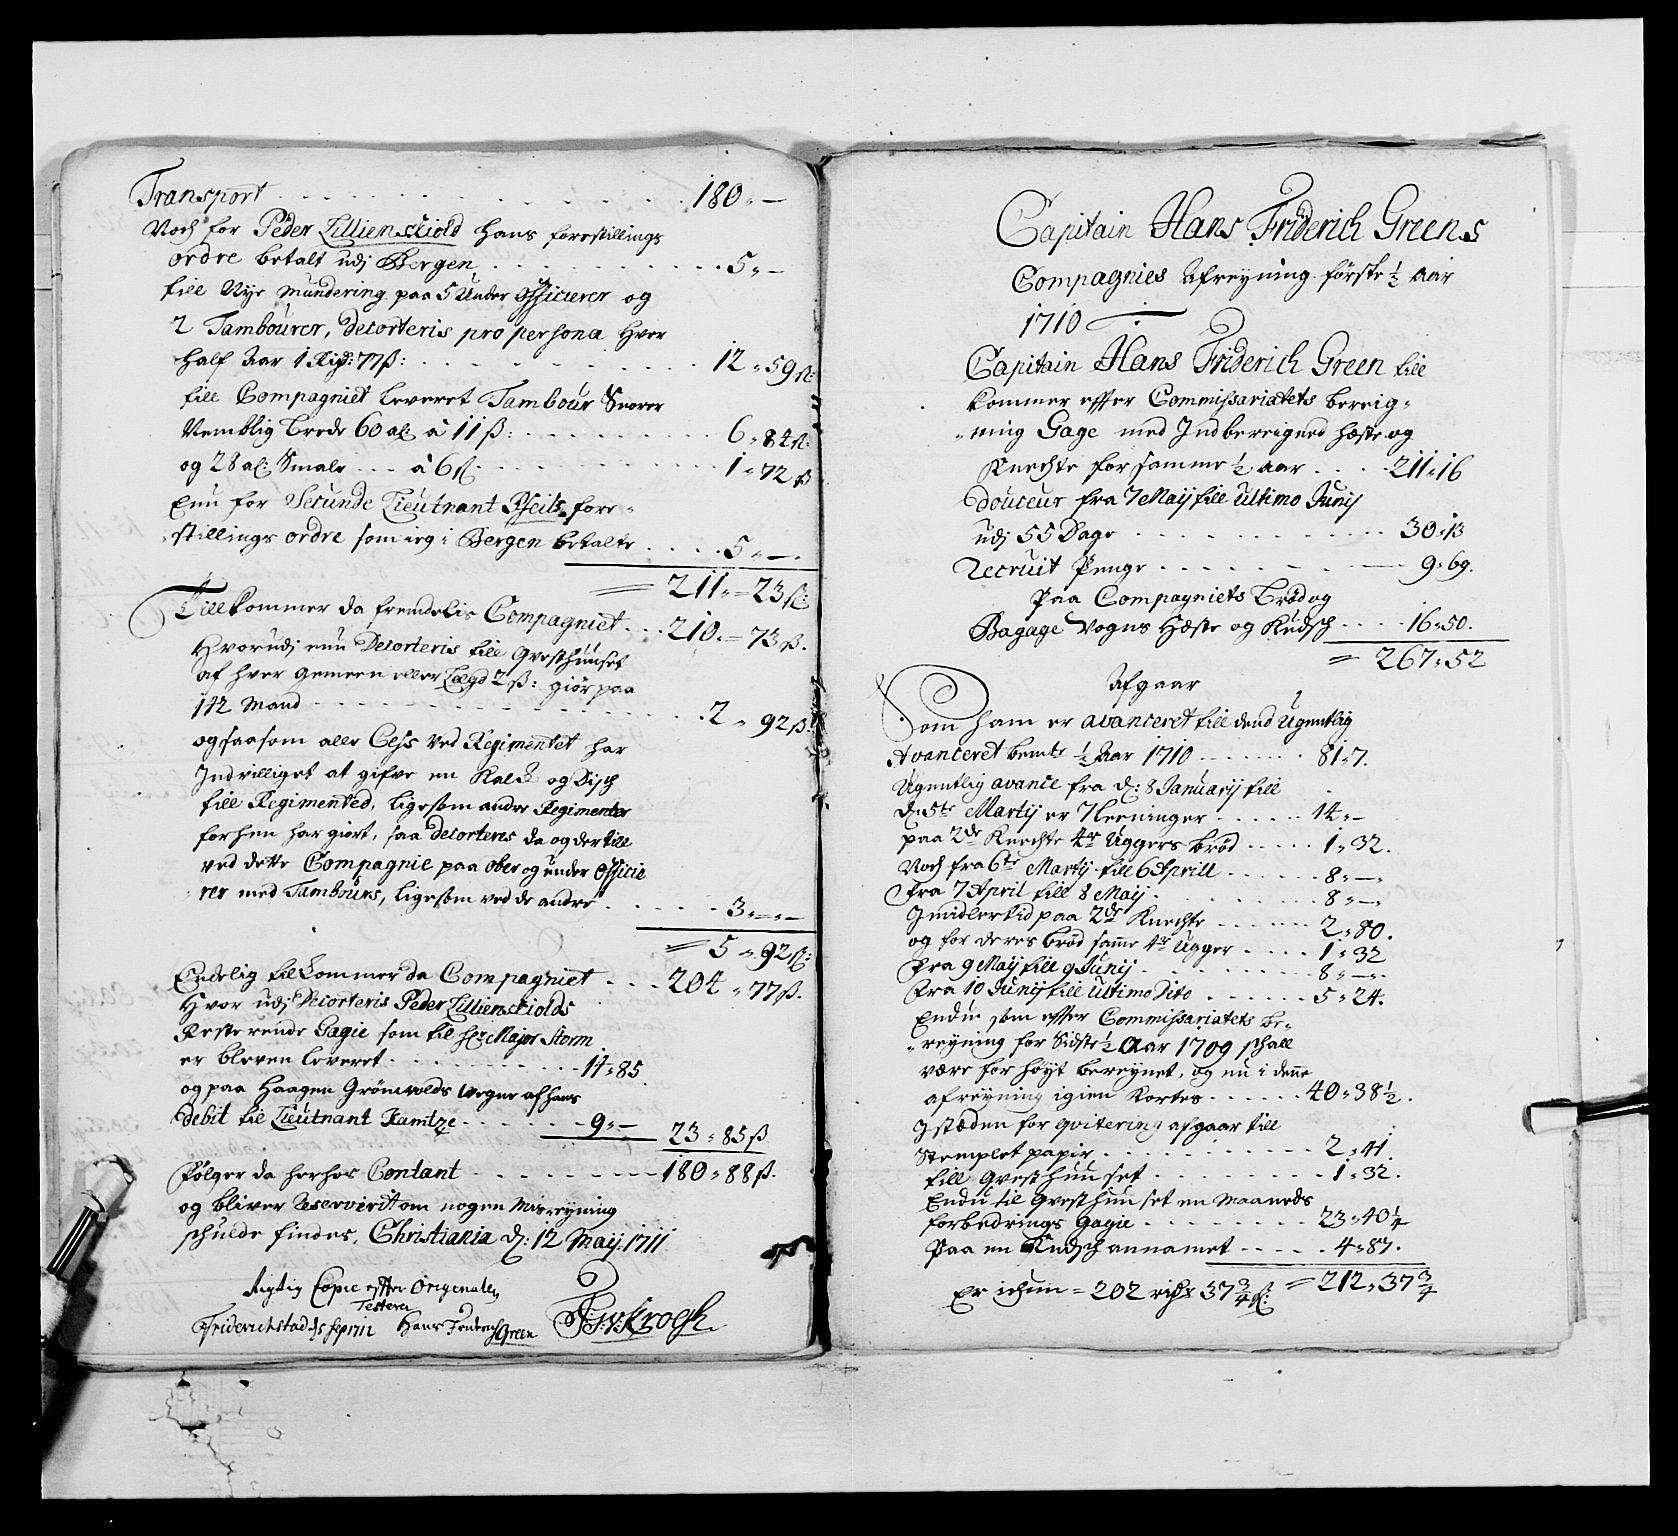 Transport . . . . . . . . . . . . 180 „ —
Noch for Peder Lillienskiold hans forestillings
ordre betalt udj Bergen . . . . . . . . 5 „ —
till Nye mundering paa 5 Under Officierer og
2 Tambourer, decorteris pro persona hver
half Aar 1 Rigd: 77 ß: . . . . . . . . 12 „ 59 ß:
till Compagniet leveret Tambour Snorer
Nemblig brede 60 al: à 11 ß: . . . . . . 6 „ 84 ß:
og 28 al: Smale . . . à 6 ß . . . . . . . 1 „ 72 ß
Enu for Secunde Lieutnant Pfeils fore-
stillings ordre som ieg i Bergen betalte . . . . 5 „ — .
= 211 „ = 23 ß:
Till kommer da fremdelis Compagniet . . . 210 „ = 73 ß.
Hvorudj enu Decorteris till Qvesthuuset
af hver gemeen eller Lægd 2 ß: giør paa
142 Mand . . . . . . . . . . . 2 „ 92 ß:
og saasom alle Cess ved Regimentet har
Indvilliget at gifve en Kalk og Disch
till Regimented, ligesom andre Regimenter
forhen har giort, saa decorteris da og dertill
ved dette Compagnie paa ober og under Officie
rer med Tambours, ligesom ved de andre . . . . . 3 „ — „ —
= 5 „ 92 ß:
Endelig til kommer da Compagniet . . . 204 „ 77 ß.
Hvor udj Decorteris Peder Lillienskiolds
Resterende Gagie som til Hr: Major Storm
er bleven leveret . . . . . . . . 14 „ 85
og paa Haagen Grönwolds Vegne af hans
debit til Lieutnant Kamtze . . . . . . 9 „ — 23 „ 85 ß
følger da herhos Contant . . . . . . . 180 „ 88 ß.
og bliver Reserverit om nogen Misreigning
schulde findes, Christiania d: 12 May 1711
Rigtig Copie efter Originalen
Testerer
Friderichstad d 5 Sep 1711 Hans Friderich Green F:W:v:Krogh
Capitain Hans Friderich Greens
Compagnies Afreigning förste ½ Aar
1710
Capitain Hans Friderich Green till
kommer effter Commissariatets bereig-
ning Gage med Indberegned hæste og
Knechte for samme ½ aar . . . . 211 „ 16
Douceur fra 7 Maij till ultimo Junij
udj 55 Dage . . . . . . . . . 30 „ 13
Recruit Penge . . . . . . . . . 9 „ 69.
Paa Compagniets Brød og
Bagage Vogns Hæste og Kudsch . . . . 16 „ 50.
= 267 „ 52
Afgaar
Som ham er avanceret till dend Ugentlig
Avanceret bemte ½ Aar 1710 . . . . . . 81 „ 7.
Ugentlig avance fra d: 8 Januarij till
d: 5te Martij er 7 Leeninger . . . . . 14 „ —
paa 2de Knechte 4er Uggers brød . . . . 1 „ 32.
Noch fra 6te Martij till 6 Aprill . . . . . 8 „ — „
fra 7 April till 8 Maij . . . . . . . 8 „ — „
Imidlertid paa 2de Knechte . . . . . 2 „ 80.
og for deres brød samme 4er Ugger . . . . 1 „ 32
fra 9 Maij till 9 Junij . . . . . . . 8 „ — „
fra 10 Junij till ultimo Dito . . . . . . 5 „ 24.
Endu som effter Commissariatets be-
reigning for Sidste ½ Aar 1709 schall
være for høyt beregnet, og nu i denne
afreigning igien kortes . . . . . . 40 „ 38½ .
I stæden for qvitering afgaar till
Stemplet papir . . . . . . . . . 2 „ 41.
till Qvesthuuset . . . . . . . . . 1 „ 32.
Endu til Qvesthuuset en Maaneds
forbedrings Gagie . . . . . . . . 23 „ 40¼
Paa en Kudsch annamet . . . . . 4 „ 87.
= 212 „ 37¾
Er ichun = 202 richs 37¾ ß: